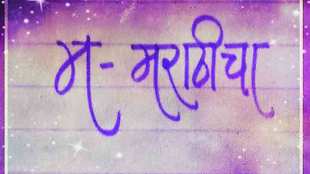 म- मराठीचा